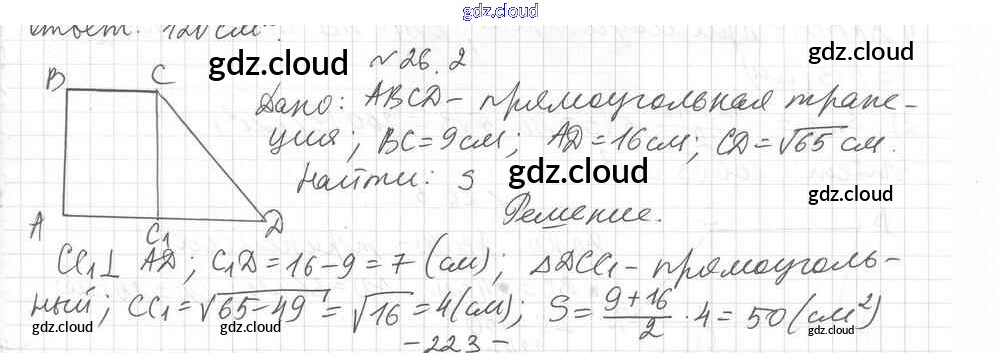 gdz.cloud
Ответ: 120 см².
gdz.cloud
gdz.cloud
№26.2
B C
Дано: ABCD - прямоугольная трапе-
ция; BC=9см; AD=16см; CD=√65 см.
Найти: S
gdz.cloud
gdz.cloud
Решение.
A C₁ D
CC₁⊥ AD; C₁D=16-9=7 (см); ΔDCC₁- прямоуголь-
ный; CC₁=√65-49=√16=4(см); S=(9+16)/2·4=50(см²)
gdz.cloud
gdz.cloud
gdz.cloud
-223-